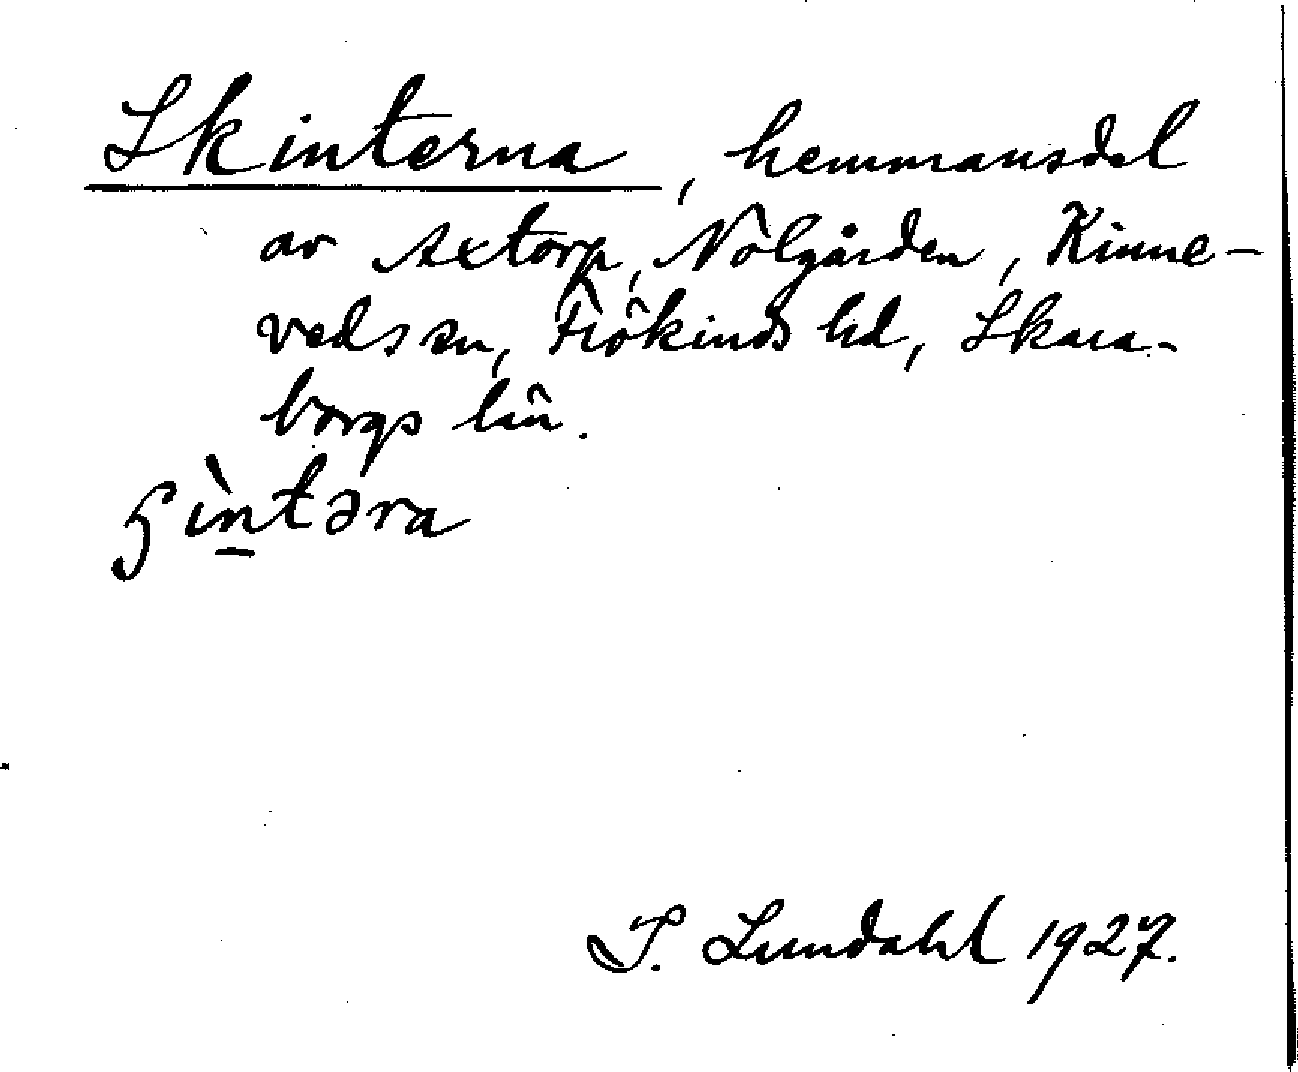 Skinterna, hemmansdel
av Axtorp, Nolgården, Kinne-
veds sn, Frökinds hd, Skara-
borgs län.
ɧìn̠təra
I. Lundahl 1927.